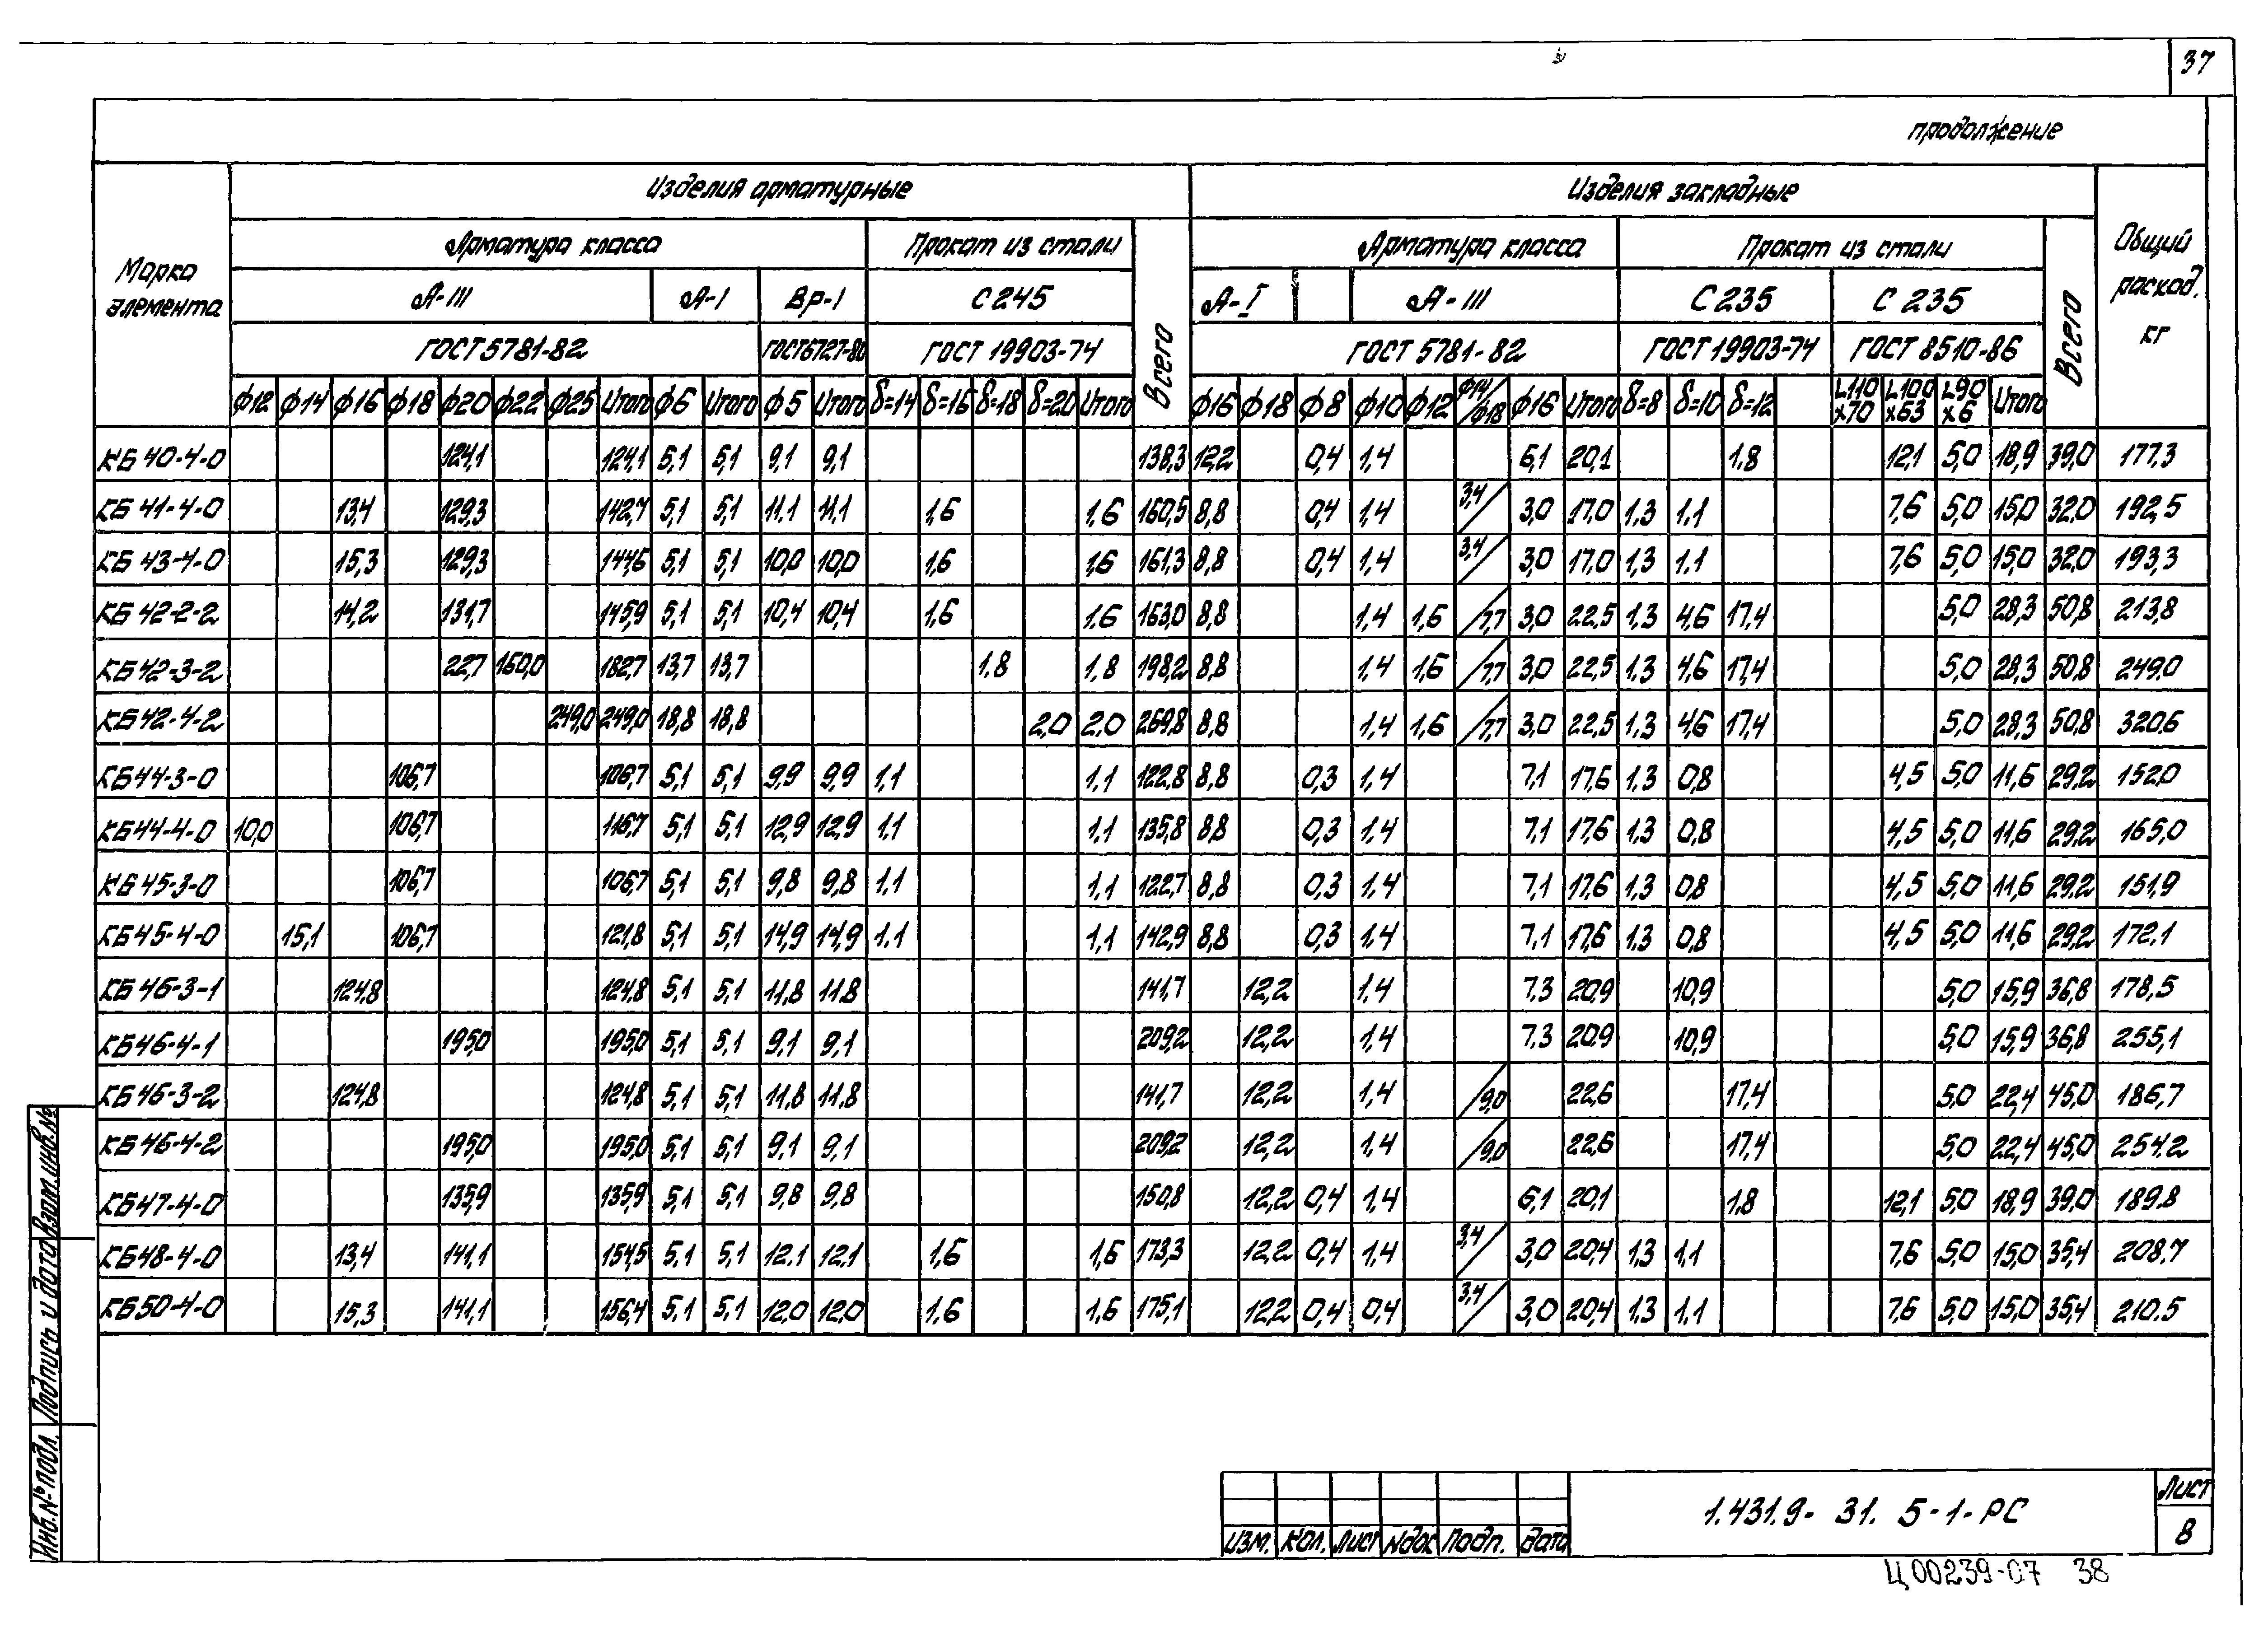 37
продолжение
Марка элемента
Изделия арматурные
Изделия закладные
Общий расход, кг
Арматура класса
Прокат из стали
Всего
Арматура класса
Прокат из стали
Всего
А-III А-I Вр-I С245 А-I А-III С235 С235
ГОСТ 5781-82 ГОСТ 6727-80 ГОСТ 19903-74 ГОСТ 5781-82 ГОСТ 19903-74 ГОСТ 8510-86
ф12 ф14 ф16 ф18 ф20 ф22 ф25 Итого ф6 Итого ф5 Итого δ=14 δ=16 δ=18 δ=20 Итого ф16 ф18 ф8 ф10 ф12 ф14/ф18 ф16 Итого δ=8 δ=10 δ=12 L110x70 L100x63 L90x6 Итого
КБ 40-4-0 124,1 124,1 5,1 5,1 9,1 9,1 138,3 12,2 0,4 1,4 6,1 20,1 1.8 12,1 5,0 18,9 39,0 177,3
КБ 41-4-0 13,4 129,3 142,7 5,1 5,1 11.1 11,1 1,6 1,6 160,5 8,8 0,4 1,4 3,4/ 3,0 17,0 1,3 1.1 7,6 5,0 15,0 32,0 192,5
КБ 43-4-0 15,3 129,3 144,6 5,1 5,1 10,0 10,0 1,6 1,6 161,3 8,8 0,4 1,4 3,4/ 3,0 17,0 1,3 1.1 7,6 5,0 15,0 32,0 193,3
КБ 42-2-2 14,2 131,7 145,9 5,1 5,1 10,4 10,4 1,6 1,6 163,0 8,8 1,4 1,6 /7,7 3,0 22,5 1,3 4,6 17,4 5,0 28,3 50,8 213,8
КБ 42-3-2 22,7 160,0 182,7 13,7 13,7 1.8 1,8 198,2 8,8 1,4 1,6 /7,7 3,0 22,5 1,3 4,6 17,4 5,0 28,3 50,8 249,0
КБ 42-4-2 249,0 249,0 18,8 18,8 2,0 2,0 269,8 8,8 1,4 1,6 /7,7 3,0 22,5 1,3 4,6 17,4 5,0 28,3 50,8 320,6
КБ 44-3-0 106,7 106,7 5,1 5,1 9,9 9,9 1,1 1,1 122,8 8,8 0,3 1,4 7,1 17,6 1,3 0,8 4,5 5,0 11,6 29,2 152,0
КБ 44-4-0 10,0 106,7 116,7 5,1 5,1 12,9 12,9 1,1 1,1 135,8 8,8 0,3 1,4 7,1 17,6 1,3 0,8 4,5 5,0 11,6 29,2 165,0
КБ 45-3-0 106,7 106,7 5,1 5,1 9,8 9,8 1,1 1,1 122,7 8,8 0,3 1,4 7,1 17,6 1,3 0,8 4,5 5,0 11,6 29,2 151,9
КБ 45-4-0 15,1 106,7 121,8 5,1 5,1 14,9 14,9 1.1 1,1 142,9 8,8 0,3 1,4 7,1 17,6 1,3 0,8 4,5 5,0 11,6 29,2 172,1
КБ 46-3-1 124,8 124,8 5,1 5,1 11,8 11,8 141,7 12,2 1,4 7,3 20,9 10,9 5,0 15,9 36,8 178,5
КБ 46-4-1 195,0 195,0 5,1 5,1 9,1 9,1 209,2 12,2 1,4 7,3 20,9 10,9 5,0 15,9 36,8 255,1
КБ 46-3-2 124,8 124,8 5,1 5,1 11,8 11,8 141,7 12,2 1,4 /9,0 22,6 17,4 5,0 22,4 45,0 186,7
КБ 46-4-2 195,0 195,0 5,1 5,1 9,1 9,1 209,2 12,2 1,4 /9,0 22,6 17,4 5,0 22,4 45,0 254,2
КБ 47-4-0 135,9 135,9 5,1 5,1 9,8 9,8 150,8 12,2 0,4 1,4 6,1 20,1 1,8 12,1 5,0 18,9 39,0 189.8
КБ 48-4-0 13,4 141,1 154,5 5,1 5,1 12.1 12,1 1,6 1,6 173,3 12,2 0,4 1,4 3,4/ 3,0 20,4 1,3 1,1 7,6 5,0 15,0 35,4 208,7
КБ 50-4-0 15,3 141,1 156,4 5,1 5,1 12,0 12,0 1,6 1,6 175,1 12,2 0,4 0,4 3,4/ 3,0 20,4 1,3 1.1 7,6 5,0 15,0 35,4 210.5
Инв.№ подл. Подпись и дата Взам.инв.№
Изм. Кол. Лист №док Подп. Дата
1.431.9- 31. 5-1-РС
Лист
8
Ц00239-07 38